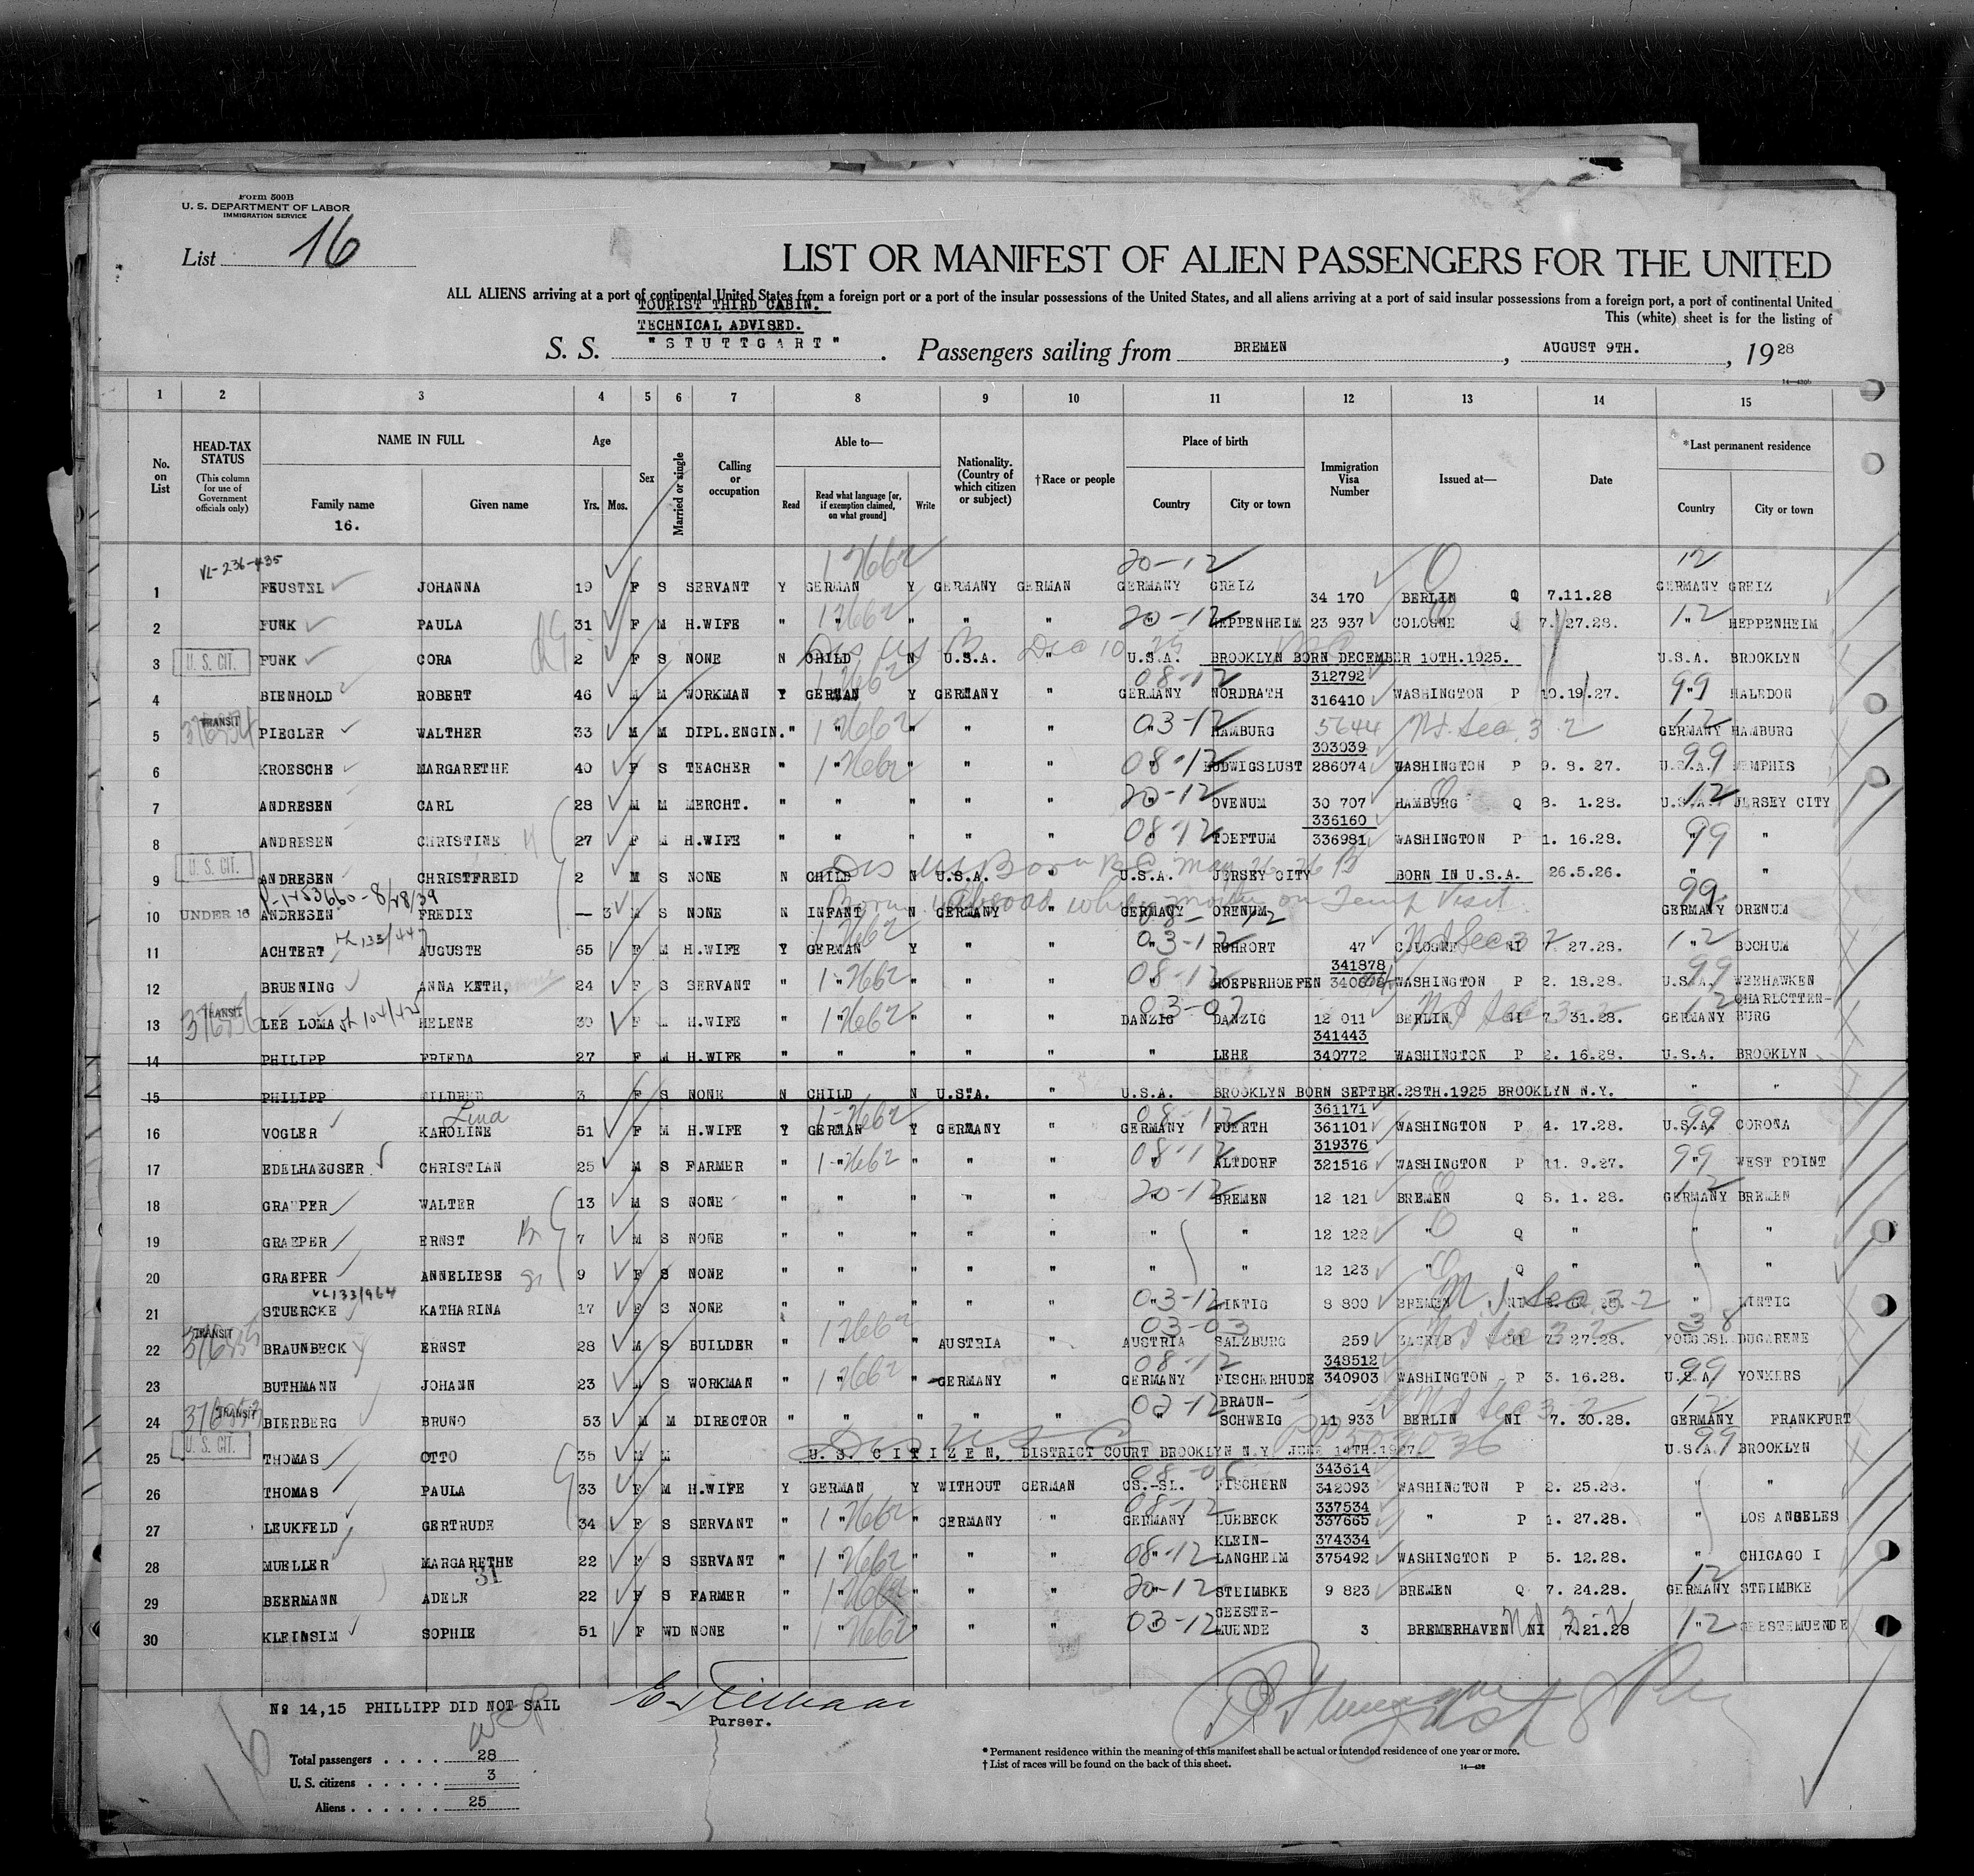 Form 500B
U. S. DEPARTMENT OF LABOR
IMMIGRATION SERVICE
List 16
LIST OR MANIFEST OF ALIEN PASSENGERS FOR THE UNITED
ALL ALIENS arriving at a port of continental United States from a foreign port or a port of the insular possessions of the United States, and all aliens arriving at a port of said insular possessions from a foreign port, a port of continental United
TOURIST THIRD CABIN.
This (white) sheet is for the listing of
TECHNICAL ADVISED.
S. S. "STUTTGART". Passengers sailing from BREMEN, AUGUST 9TH., 1928
1 2 3 4 5 6 7 8 9 10 11 12 13 14 15
No. on List
HEAD-TAX STATUS (This column for use of Government officials only)
NAME IN FULL Family name Given name
16.
Age Yrs. Mos.
Sex
Married or single
Calling or occupation
Able to— Read Read what language [or, if exemption claimed, on what ground] Write
Nationality. (Country of which citizen or subject)
†Race or people
Place of birth Country City or town
Immigration Visa Number
Issued at—
Date
*Last permanent residence Country City or town
VL-236-435 20-12 12
1 FEUSTEL JOHANNA 19 F S SERVANT Y GERMAN Y GERMANY GERMAN GERMANY GREIZ 34 170 BERLIN Q 7.11.28 GERMANY GREIZ
2 FUNK PAULA 31 F M H.WIFE " " " " " 20-12 " HEPPENHEIM 23 937 COLOGNE Q 7.27.28. 12 " HEPPENHEIM
3 U. S. CIT. FUNK CORA 2 F S NONE N CHILD N U.S.A. " U.S.A. BROOKLYN BORN DECEMBER 10TH.1925. U.S.A. BROOKLYN
312792
4 BIENHOLD ROBERT 46 M M WORKMAN Y GERMAN Y GERMANY " 08-12 GERMANY NORDRATH 316410 WASHINGTON P 10.19.27. 99 " HALEDON
5 TRANSIT PIEGLER WALTHER 33 M M DIPL.ENGIN. " " " " " 03-12 " HAMBURG 5644 12 GERMANY HAMBURG
303039
6 KROESCHE MARGARETHE 40 F S TEACHER " " " " " 08-12 " LUDWIGSLUST 286074 WASHINGTON P 9. 8. 27. 99 U.S.A. MEMPHIS
7 ANDRESEN CARL 28 M M MERCHT. " " " " " 20-12 " OVENUM 30 707 HAMBURG Q 8. 1.28. 12 U.S.A. JERSEY CITY
336160
8 ANDRESEN CHRISTINE 27 F M H.WIFE " " " " " 08-12 " TOEFTUM 336981 WASHINGTON P 1. 16.28. 99 " "
9 U. S. CIT. ANDRESEN CHRISTFREID 2 M S NONE N CHILD N U.S.A. " U.S.A. JERSEY CITY BORN IN U.S.A. 26.5.26. " "
Born abroad while mother on Temp Visit
10 UNDER 16 ANDRESEN FREDIE — 3 M S NONE N INFANT N GERMANY " GERMANY ORENUM 99 GERMANY ORENUM
11 ACHTERT AUGUSTE 65 F M H.WIFE Y GERMAN Y " " 03-12 " RUHRORT 47 COLOGNE NI 7.27.28. 12 " BOCHUM
341878
12 BRUENING ANNA KETH, 24 F S SERVANT " " " " " 08-12 " HOEPERHOEFEN WASHINGTON P 2. 18.28. 99 U.S.A. WEEHAWKEN
13 TRANSIT LEE LOMA HELENE 30 F M H.WIFE " " " " " 03-07 DANZIG DANZIG 12 011 BERLIN NI 7.31.28. 12 GERMANY CHARLOTTEN-BURG
341443
14 PHILIPP FRIEDA 27 F M H.WIFE " " " " " " LEHE 340772 WASHINGTON P 2. 16.28. U.S.A. BROOKLYN
15 PHILIPP MILDRED 3 F S NONE N CHILD N U.S.A. " U.S.A. BROOKLYN BORN SEPTBR.28TH.1925 BROOKLYN N.Y. " "
Lina 361171
16 VOGLER KAROLINE 51 F M H.WIFE Y GERMAN Y GERMANY " 08-12 GERMANY FUERTH 361101 WASHINGTON P 4. 17.28. 99 U.S.A. CORONA
319376
17 EDELHAEUSER CHRISTIAN 25 M S FARMER " " " " " 08-12 " ALTDORF 321516 WASHINGTON P 11. 9.27. 99 " WEST POINT
18 GRAEPER WALTER 13 M S NONE " " " " " 20-12 " BREMEN 12 121 BREMEN Q 8. 1. 28. 12 GERMANY BREMEN
19 GRAEPER ERNST 7 M S NONE " " " " " " " 12 122 " Q " " "
20 GRAEPER ANNELIESE 9 F S NONE " " " " " " " 12 123 " Q " " "
21 STUERCKE KATHARINA 17 F S NONE " " " " " 03-12 8 800 BREMEN NI "
22 TRANSIT BRAUNBECK ERNST 28 M S BUILDER " " " AUSTRIA " 03-03 AUSTRIA SALZBURG 259 ZAGREB NI 7.27.28. 38 YOUGOSL. DUGARENE
348512
23 BUTHMANN JOHANN 23 M S WORKMAN " " " GERMANY " 08-12 GERMANY FISCHERHUDE 340903 WASHINGTON P 3. 16.28. 99 U.S.A. YONKERS
24 TRANSIT BIERBERG BRUNO 53 M M DIRECTOR " " " " " " BRAUN-SCHWEIG 11 933 BERLIN NI 7. 30.28. 12 GERMANY FRANKFURT
25 U. S. CIT. THOMAS OTTO 35 M M U. S. CITIZEN, DISTRICT COURT BROOKLYN N.Y. JUNE 14TH.1927. 99 U.S.A. BROOKLYN
343614
26 THOMAS PAULA 33 F M H.WIFE Y GERMAN Y WITHOUT GERMAN CS.-SL. FISCHERN 342093 WASHINGTON P 2. 25.28. " "
337534
27 LEUKFELD GERTRUDE 34 F S SERVANT " " " GERMANY " 08-12 GERMANY LUEBECK 337665 " P 1. 27.28. " LOS ANGELES
374334
28 MUELLER MARGARETHE 22 F S SERVANT " " " " " 08-12 " KLEIN-LANGHEIM 375492 WASHINGTON P 5. 12.28. " CHICAGO I
31
29 BEERMANN ADELE 22 F S FARMER " " " " " 20-12 " STEIMBKE 9 823 BREMEN Q 7. 24.28. 12 GERMANY STEIMBKE
30 KLEINSIM SOPHIE 51 F WD NONE " " " " " 03-12 GEESTE-MUENDE 3 BREMERHAVEN NI 7.21.28 12 " GEESTEMUENDE
No 14,15 PHILLIPP DID NOT SAIL
Purser.
Total passengers . . . . 28
U. S. citizens . . . . . 3
Aliens . . . . . . 25
* Permanent residence within the meaning of this manifest shall be actual or intended residence of one year or more.
† List of races will be found on the back of this sheet.